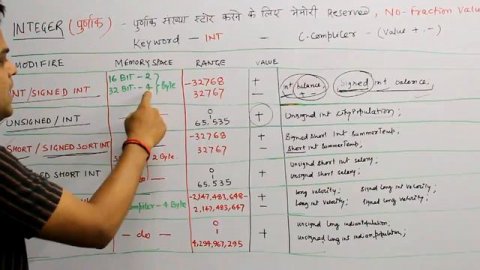 INTEGER (पुर्णांक) - पुर्णांक संख्या स्टोर करने के लिए मेमोरी Reserved, NO-Fraction Value
Keyword - INT - C-Compiler - (Value + , -)
MODIFIRE MEMORY SPACE RANGE VALUE
INT/SIGNED INT 16 BIT - 2 32 BIT - 4 Byte -32768 32767 + - int balance, signed int balance,
UNSIGNED / INT 0 65.535 + Unsigned Int CityPopulation;
SHORT/SIGNED SORT INT -32768 32767 + - Signed Short Int SummerTemp,
Short int SummerTemp,
SHORT INT 2 Byte. 0 65.535 + unsigned Short salary;
unsigned short int salary;
Compiler - 4 Byte -2,147,483,648- 2,147,483,647 + - long velocity; Signed long velocity;
long int velocity; Signed long int velocity;
- do - 0 4,294,967,295 + unsigned long indianpopulation;
unsigned long int indian population;